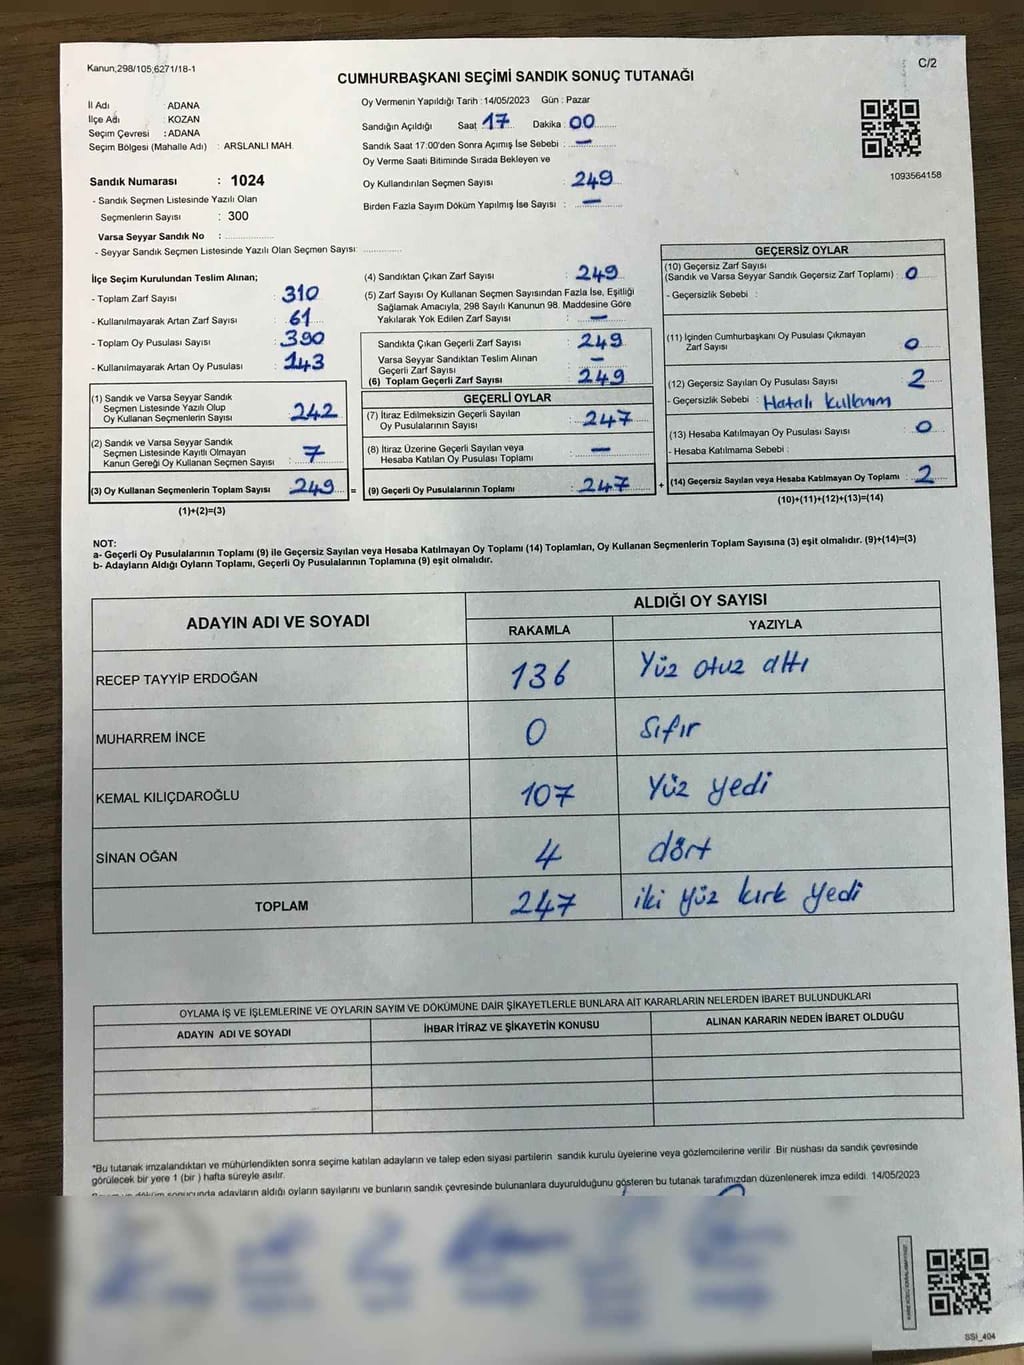 Kanun,298/105,6271/18-1
C/2
CUMHURBAŞKANI SEÇİMİ SANDIK SONUÇ TUTANAĞI
İl Adı : ADANA
İlçe Adı : KOZAN
Seçim Çevresi : ADANA
Seçim Bölgesi (Mahalle Adı) : ARSLANLI MAH.
Sandık Numarası : 1024
- Sandık Seçmen Listesinde Yazılı Olan
Seçmenlerin Sayısı : 300
Varsa Seyyar Sandık No :
- Seyyar Sandık Seçmen Listesinde Yazılı Olan Seçmen Sayısı:
Oy Vermenin Yapıldığı Tarih : 14/05/2023 Gün : Pazar
Sandığın Açıldığı Saat 17 Dakika : 00
Sandık Saat 17:00'den Sonra Açımış İse Sebebi : —
Oy Verme Saati Bitiminde Sırada Bekleyen ve
Oy Kullandırılan Seçmen Sayısı : 249
Birden Fazla Sayım Döküm Yapılmış İse Sayısı : —
1093564158
İlçe Seçim Kurulundan Teslim Alınan;
- Toplam Zarf Sayısı : 310
- Kullanılmayarak Artan Zarf Sayısı : 61
- Toplam Oy Pusulası Sayısı : 390
- Kullanılmayarak Artan Oy Pusulası : 143
(1) Sandık ve Varsa Seyyar Sandık
Seçmen Listesinde Yazılı Olup
Oy Kullanan Seçmenlerin Sayısı : 242
(2) Sandık ve Varsa Seyyar Sandık
Seçmen Listesinde Kayıtlı Olmayan
Kanun Gereği Oy Kullanan Seçmen Sayısı : 7
(3) Oy Kullanan Seçmenlerin Toplam Sayısı : 249 =
(1)+(2)=(3)
(4) Sandıktan Çıkan Zarf Sayısı : 249
(5) Zarf Sayısı Oy Kullanan Seçmen Sayısından Fazla İse, Eşitliği
Sağlamak Amacıyla, 298 Sayılı Kanunun 98. Maddesine Göre
Yakılarak Yok Edilen Zarf Sayısı : —
Sandıkta Çıkan Geçerli Zarf Sayısı : 249
Varsa Seyyar Sandıktan Teslim Alınan
Geçerli Zarf Sayısı : —
(6) Toplam Geçerli Zarf Sayısı : 249
GEÇERLİ OYLAR
(7) İtiraz Edilmeksizin Geçerli Sayılan
Oy Pusulalarının Sayısı : 247
(8) İtiraz Üzerine Geçerli Sayılan veya
Hesaba Katılan Oy Pusulası Toplamı : —
(9) Geçerli Oy Pusulalarının Toplamı : 247 +
GEÇERSİZ OYLAR
(10) Geçersiz Zarf Sayısı
(Sandık ve Varsa Seyyar Sandık Geçersiz Zarf Toplamı) : 0
- Geçersizlik Sebebi :
(11) İçinden Cumhurbaşkanı Oy Pusulası Çıkmayan
Zarf Sayısı : 0
(12) Geçersiz Sayılan Oy Pusulası Sayısı : 2
- Geçersizlik Sebebi : Hatalı kullanım
(13) Hesaba Katılmayan Oy Pusulası Sayısı : 0
- Hesaba Katılmama Sebebi :
(14) Geçersiz Sayılan veya Hesaba Katılmayan Oy Toplamı : 2
(10)+(11)+(12)+(13)=(14)
NOT:
a- Geçerli Oy Pusulalarının Toplamı (9) ile Geçersiz Sayılan veya Hesaba Katılmayan Oy Toplamı (14) Toplamları, Oy Kullanan Seçmenlerin Toplam Sayısına (3) eşit olmalıdır. (9)+(14)=(3)
b- Adayların Aldığı Oyların Toplamı, Geçerli Oy Pusulalarının Toplamına (9) eşit olmalıdır.
ADAYIN ADI VE SOYADI
ALDIĞI OY SAYISI
RAKAMLA YAZIYLA
RECEP TAYYİP ERDOĞAN 136 Yüz otuz altı
MUHARREM İNCE 0 Sıfır
KEMAL KILIÇDAROĞLU 107 Yüz yedi
SİNAN OĞAN 4 dört
TOPLAM 247 iki yüz kırk yedi
OYLAMA İŞ VE İŞLEMLERİNE VE OYLARIN SAYIM VE DÖKÜMÜNE DAİR ŞİKAYETLERLE BUNLARA AİT KARARLARIN NELERDEN İBARET BULUNDUKLARI
ADAYIN ADI VE SOYADI İHBAR İTİRAZ VE ŞİKAYETİN KONUSU ALINAN KARARIN NEDEN İBARET OLDUĞU
*Bu tutanak imzalandıktan ve mühürlendikten sonra seçime katılan adayların ve talep eden siyasi partilerin sandık kurulu üyelerine veya gözlemcilerine verilir .Bir nüshası da sandık çevresinde
görülecek bir yere 1 (bir ) hafta süreyle asılır.
sonucunda adayların aldığı oyların sayılarını ve bunların sandık çevresinde bulunanlara duyurulduğunu gösteren bu tutanak tarafımızdan düzenlenerek imza edildi. 14/05/2023
SSI_404